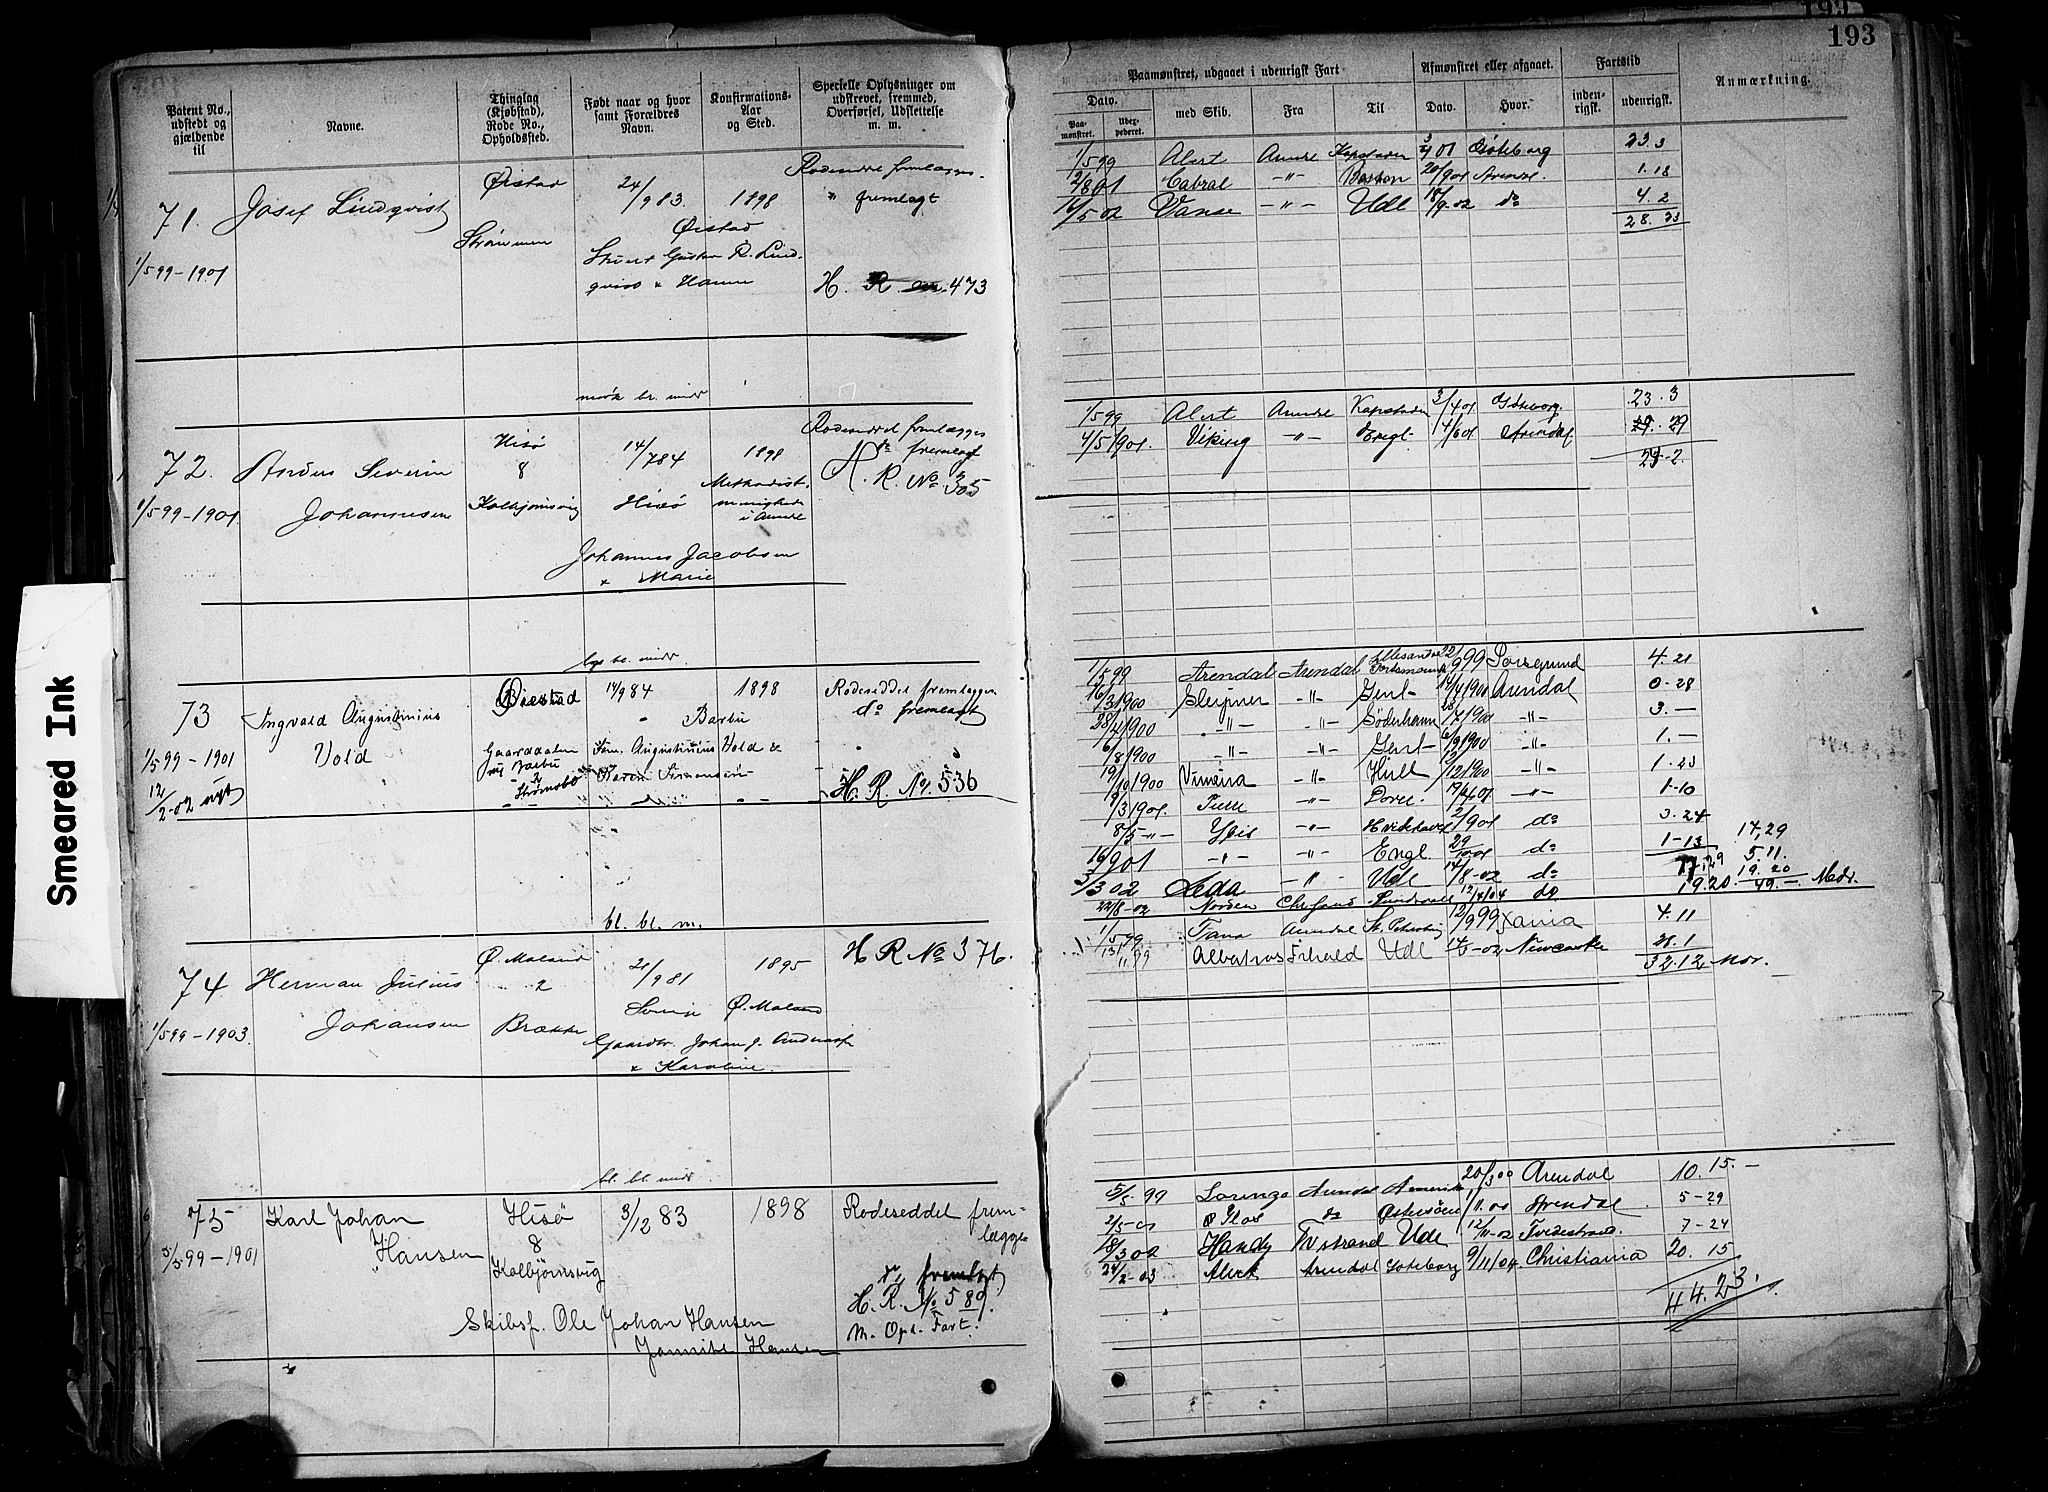 193
Patent No., udstedt og gjældende til
Navne.
Thinglag (Kjøbstad), Rode No., Opholdssted.
Født naar og hvor samt Forældres Navn.
Konfirmations-Aar og Sted.
Specielle Oplysninger om udskrevet, fremmed, Overførsel, Udslettelse m. m.
Paamønstret, udgaaet i udenrigsk Fart
Afmønstret eller afgaaet.
Fartstid
Anmærkning.
Dato.
Paamønstret.
Udexpederet.
med Skib.
Fra
Til
Dato.
Hvor.
indenrigsk.
udenrigsk.
71.
1/5 99-1901
Josef Lindqvist
Øistad
Strømmen
24/9 83.
1898
Øistad
Rodeseddel fremlægges.
" fremlagt
H. R. 473
1/5 99 Alert Arendl Kapstaden 3/4 01 Gøteborg 23.3
2/8 01 Cabral -"- Boston 20/9 01 Arendl. 1.18
16/5 02 Vanse -"- Udl 18/9-02 do 4.2
28.23
mørk bl. midd
72.
1/5 99-1901
Anders Severin Johannesen
Hisø
8
Kolbjørnsvig
14/7 84
Hisø
Johannes Jacobsen
x Marie
1898
Methodist-menighed i Arendl
Rodeseddel fremlægges
do fremlagt
H. R. No 305
1/5 99 Alert Arendl Kapstaden 3/4 01 Gøteborg. 23.3
4/5 1901. Viking -"- Engl. 4/6 01 Arendal 29
24-2.
lys bl. midd.
73
1/5 99-1901
12/2-02 nyt
Ingvald Augustinius Vold
Øiestad
14/9 84
" Barbu
Fam. Augustinius Vold &
Karen Simonsen
1898
Rodeseddel fremlægges
do fremlagt
H. R. No. 536
1/5 99 Arendal Arendal 22/9 99 Porsgrund 4.21
16/3 1900 Sleipner -"- Gent 14/4 1900 Arendal 0-28
28/4 1900 -"- -"- Söderhamn -"- 3.-
6/8 1900 -"- -"- Gent 6/9 1900 -"- 1.-
19/10 1900 -"- Hull 12/12 1900 -"- 1.23
9/3 1901. -"- Dover. -"- 1-10
8/5 -"- -"- 2/9 01 do 3.24
16/9 01 -"- -"- Engl. 29/10 01 do 1-13
3/3 02 Leda -"- Udl 14/8-02 do 17.29
22/8-02 Norden 12/4 04 do 19.20
17,29
5.11.
19.20
49.-
bl. bl. m.
74.
1/5 99-1903.
Herman Julius Johansen
Ø. Moland
2
Brække
21/9 81
Ø. Moland
Gaardbr. Johan J.
x Karoline.
1895
H R No 376.
1/5 99 Arendal St. Petersbg 12/9 99 Xania 4.11
13/11 99 Albatros Udl Newcastle 28.1
32.12
bl. bl. midd
75
5/5 99-1901
Karl Johan Hansen
Hisø
8
Kolbjørnsvig
3/12 83
1898
Skibsf. Ole Johan Hansen
Hansen
Rodeseddel fremlægges
do fremlagt.
H. R. No 589.
M. Opl. Fart.
5/5 99 Lorenzo Arendal Amerika 20/3 00 Arendal 10.15.-
2/5-00 Glas do Østersöen 1/11.00 Arendal. 5-29
18/3 02 Handy Tvstrand Udl 12/11-02 Tvedestrand. 7-24
24/2-03 Arendal Göteborg 9/11 04 Christiania 20.15
44.23.
Smeared Ink